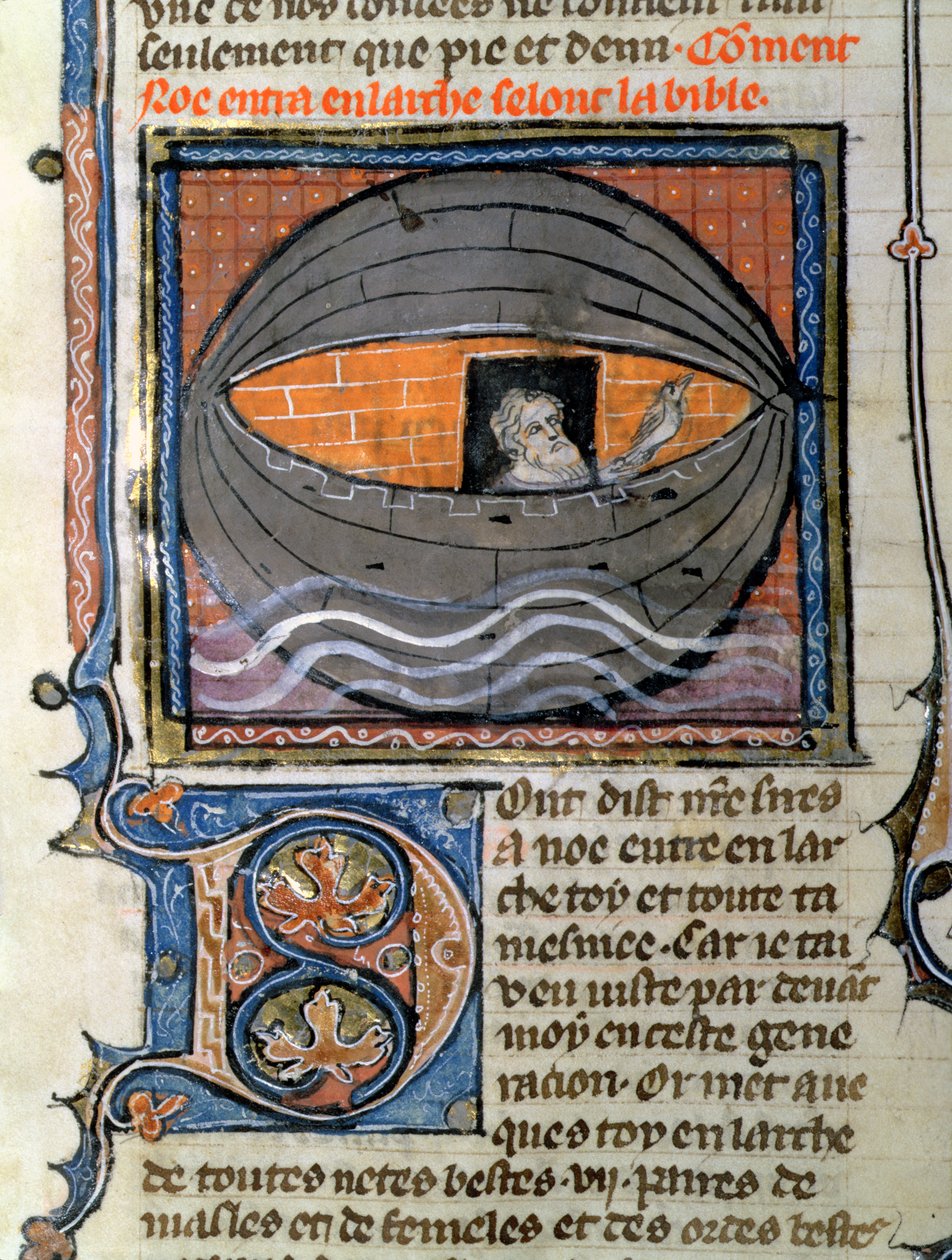 vne de nos coutees ne contient tant
seulement que pie et demi. Cōment
Noe entra en larche selonc la bible.
Dont dist nr̄e sires
a noe entre en lar
che toy et toute ta
mesniee. Car ie tai
veu iuste par deuāt
moy en ceste gene
racion. Or met aue
ques toy en larche
de toutes netes bestes .vij. paires de
masles et de femeles et des ordes bestes